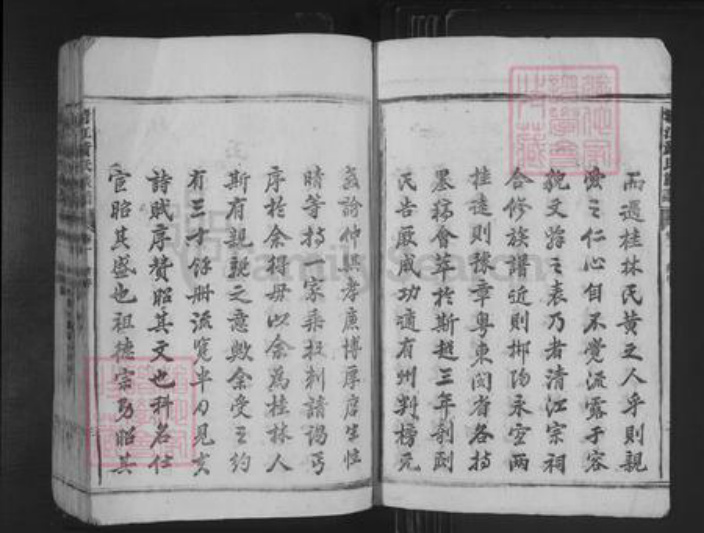 而遇桂林氏黄之人乎則親
愛之仁心自不覺流露于容
貌文辞之表乃者清江宗祠
合修族譜近則郴陽永宝兩
桂遠則豫章粤東閩省各持
墨稿會萃於斯越三年剞劂
氏告厥成功適有州判榜元
翁詒仲與孝廉博厚庠生性
晴等持一家乘投刺請謁丐
序於余得毋以余為桂林人
斯有親親之意歟余受之約
有三十餘冊流覽半刀見夫
詩賦序贊昭其文也科名仕
宦昭其盛也祖德宗功昭其
FamilySearch